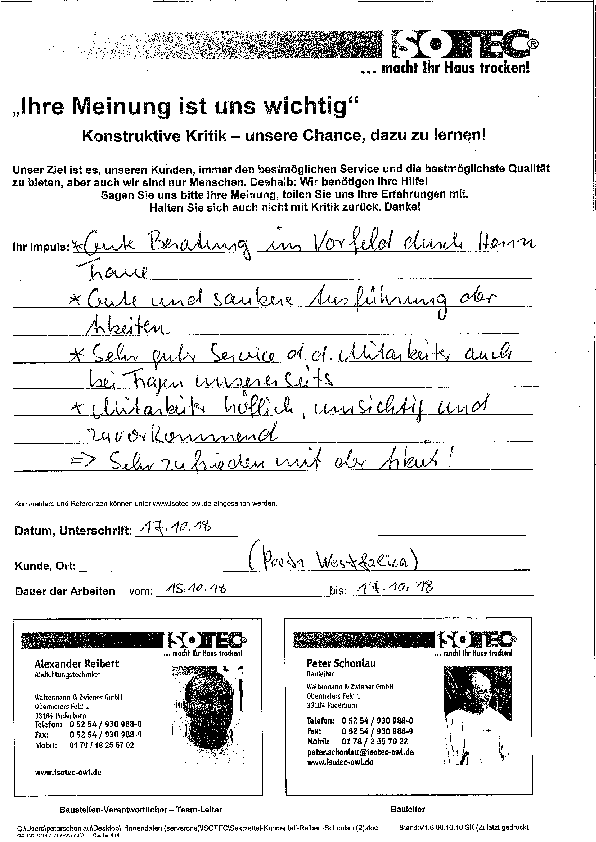 ISOTEC®
... macht Ihr Haus trocken!
„Ihre Meinung ist uns wichtig“
Konstruktive Kritik – unsere Chance, dazu zu lernen!
Unser Ziel ist es, unseren Kunden, immer den bestmöglichen Service und die bestmöglichste Qualität
zu bieten, aber auch wir sind nur Menschen. Deshalb: Wir benötigen Ihre Hilfe!
Sagen Sie uns bitte Ihre Meinung, teilen Sie uns Ihre Erfahrungen mit.
Halten Sie sich auch nicht mit Kritik zurück. Danke!
Ihr Impuls: * Gute Beratung im Vorfeld durch Herrn
* Gute und saubere Ausführung der
Arbeiten
* Sehr guter Service d. d. Mitarbeiter auch
bei Fragen unsererseits
* Mitarbeiter höflich, umsichtig und
zuvorkommend
=> Sehr zufrieden mit der Arbeit!
Kommentare und Referenzen können unter www.isotec-owl.de eingesehen werden.
Datum, Unterschrift: 17.10.18
Kunde, Ort: (Porta Westfalica)
Dauer der Arbeiten vom: 15.10.18 bis: 17.10.18
ISOTEC®
... macht Ihr Haus trocken!
Alexander Reibert
Abdichtungstechniker
Waltermann & Zwiener GmbH
33104 Paderborn
Telefon: 0 52 54 / 930 988-0
Fax:
Mobil:
www.isotec-owl.de
ISOTEC®
... macht Ihr Haus trocken!
Peter Schonlau
Bauleiter
Waltermann & Zwiener GmbH
33104 Paderborn
Telefon: 0 52 54 / 930 988-0
Fax:
Mobil:
peter.schonlau@isotec-owl.de
www.isotec-owl.de
Baustellen-Verantwortlicher – Team-Leiter
Bauleiter